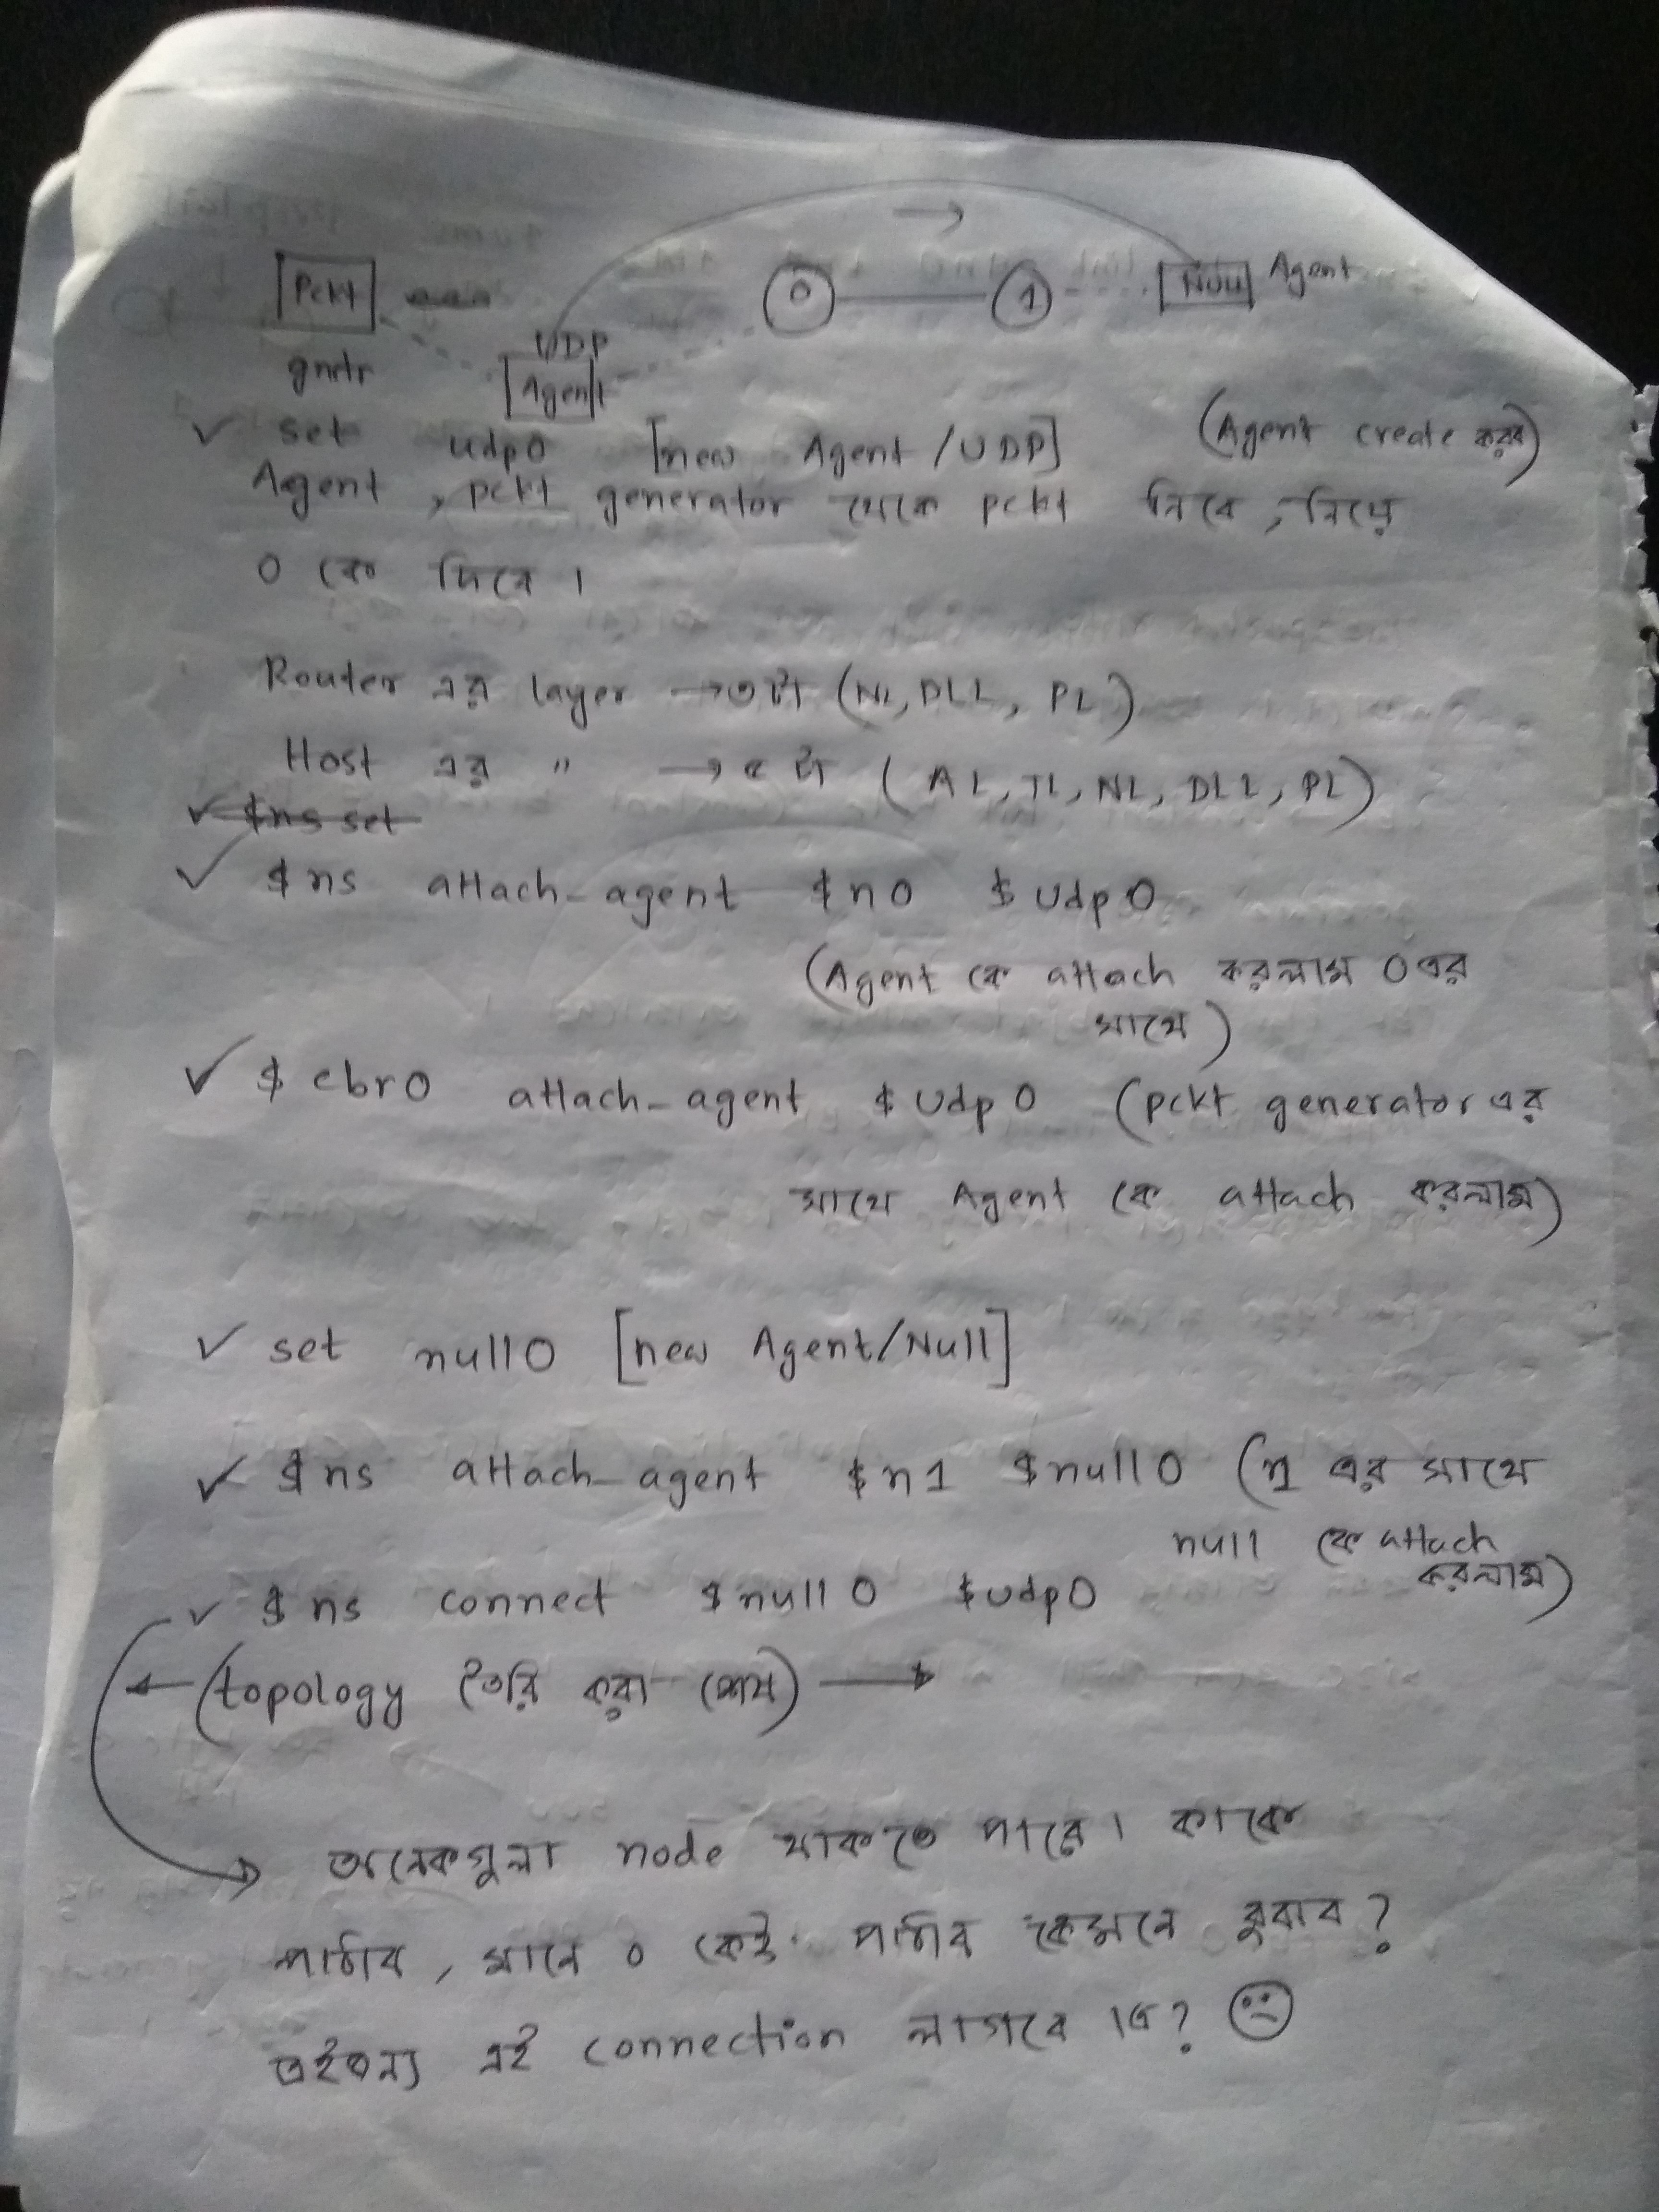 →
Pckt 0 1 Null Agent
gnrtr UDP
Agent
✓ set udp0 [new Agent/UDP] (Agent create করব)
Agent, pckt generator থেকে pckt নিবে, নিয়ে
0 কে দিবে।
Router এর layer → ৩টা (NL, DLL, PL)
Host এর " → ৫ টা (AL, TL, NL, DLL, PL)
✓ $ns set
✓ $ns attach-agent $n0 $udp0
(Agent কে attach করলাম 0 এর
সাথে)
✓ $cbr0 attach-agent $udp0 (pckt generator এর
সাথে Agent কে attach করলাম)
✓ set null0 [new Agent/Null]
✓ $ns attach-agent $n1 $null0 (n1 এর সাথে
null কে attach
করলাম)
✓ $ns connect $null0 $udp0
← (topology তৈরি করা শেষ) →
→ অনেকগুলা node থাকতে পারে। কাকে
পাঠাব, মানে 0 কেই পাঠাব কেমনে বুঝব?
তাইজন্য এই connection লাগবে তো? ☹